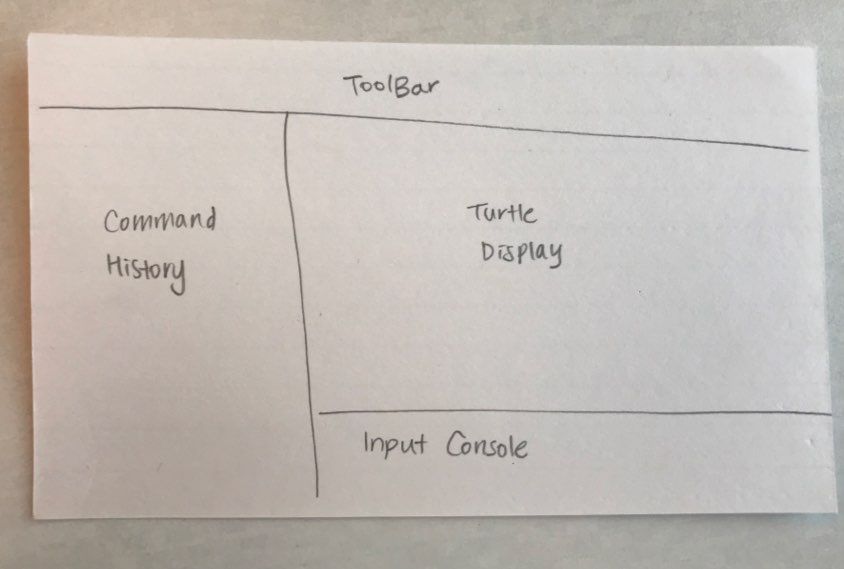 ToolBar
Command
History
Turtle
Display
Input Console